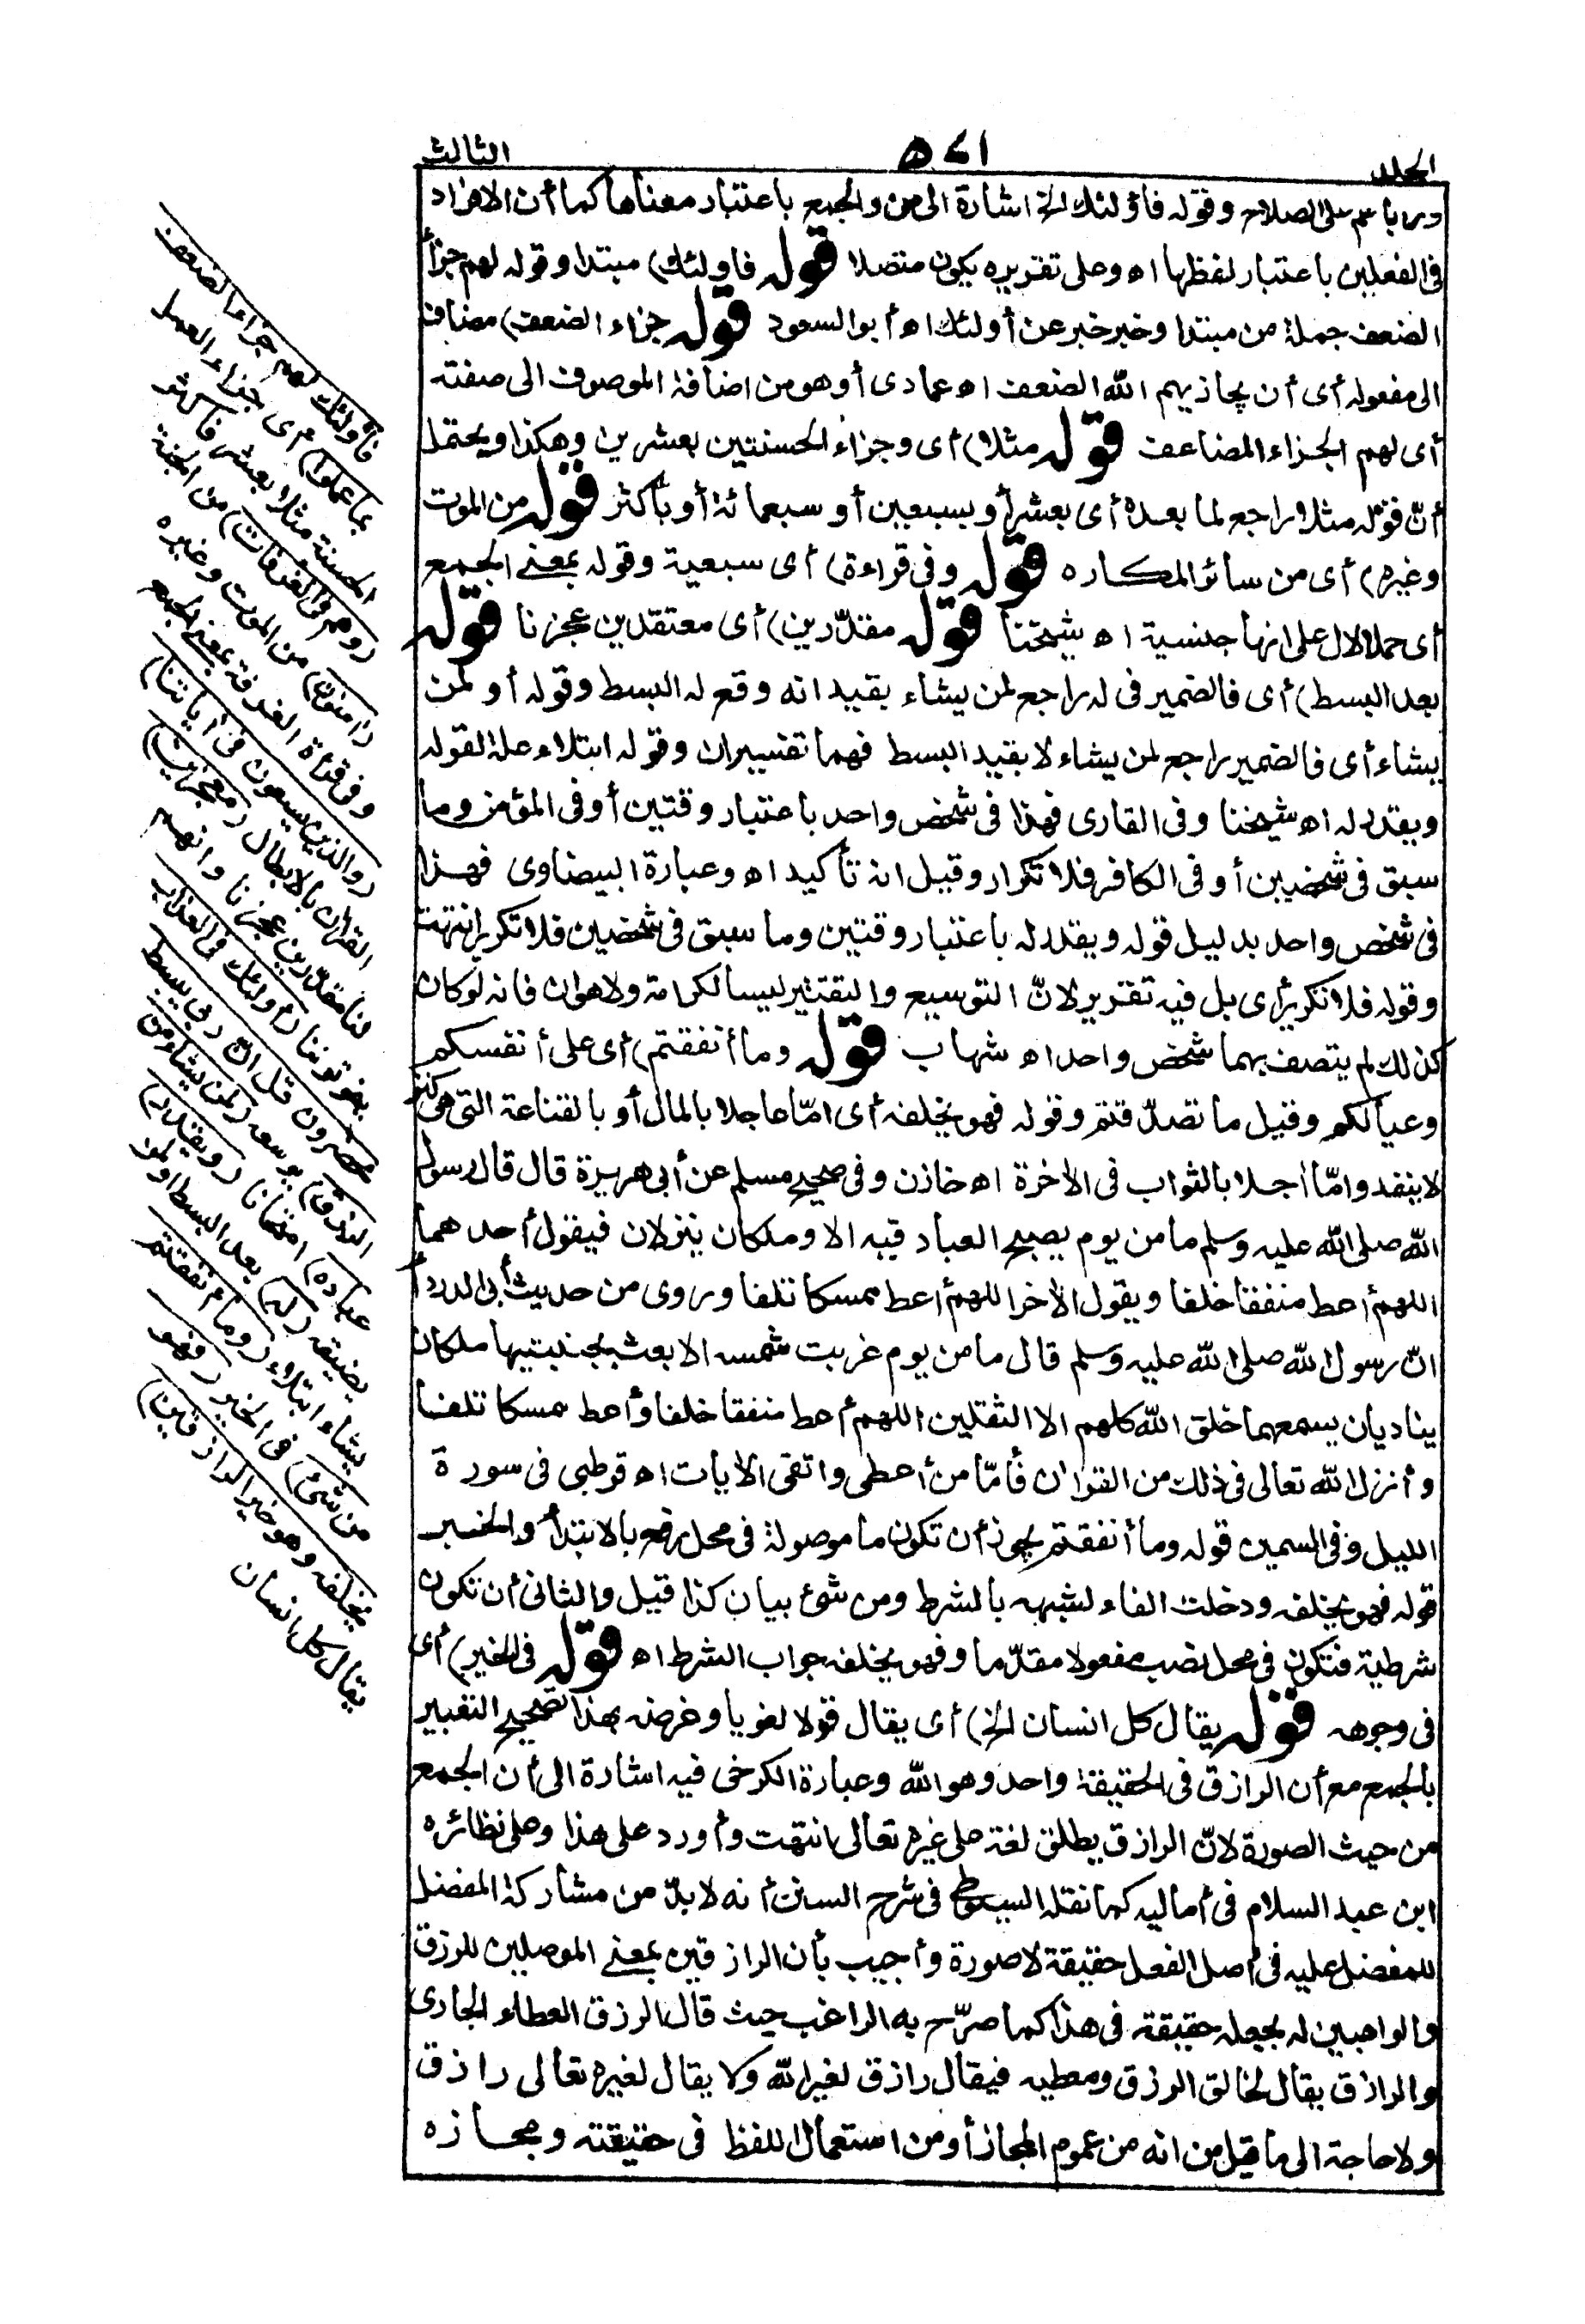 المجلد ٥٧١ الثالث
ورباهم على الصلاح وقوله فأولئك الخ اشارة الى من والجمع باعتبار معناها كما أن الافراد
فى الفعلين باعتبار لفظها اه وعلى تقريره يكون متصلا قوله فاولئك) مبتدا وقوله لهم جزأ
الضعف جملة من مبتدا وخبر خبر عن أولئك اه أبو السعود قوله جزاء الضعف) مضاف
الى مفعوله أى أن يجازيهم الله الضعف اه عمادى أو هو من اضافة الموصوف الى صفته
أى لهم الجزاء المضاعف قوله مثلا) أى وجزاء الحسنتين بعشرين وهكذا ويحتمل
أنّ قوله مثلا راجع لما بعده أى بعشر أو بسبعين أو سبعمائة أو بأكثر قوله من الموت
وغيره) أى من سائر المكاره قوله وفى قراءة) أى سبعية وقوله بمعنى الجمع
أى حملا لال على انها جنسية اه شيخنا قوله مقدّرين) أى معتقدين عجزنا قوله
بعد البسط) أى فالضمير فى له راجع لمن يشاء بقيد انه وقع له البسط وقوله أو لمن
يشاء أى فالضمير راجع لمن يشاء لا بقيد البسط فهما تفسيران وقوله ابتلاء علة لقوله
ويقدر له اه شيخنا وفى القارى فهذا فى شخص واحد باعتبار وقتين أو فى المؤمن وما
سبق فى شخصين أو فى الكافر فلا تكرار وقيل انه تأكيد اه وعبارة البيضاوى فهذا
فى شخص واحد بدليل قوله ويقدر له باعتبار وقتين وما سبق فى شخصين فلا تكرير انتهت
وقوله فلا تكرير أى بل فيه تقرير لانّ التوسيع والتقتير ليسا لكرامة ولا هوان فانه لو كان
كذلك لم يتصف بهما شخص واحد اه شهاب قوله وما أنفقتم) أى على أنفسكم
وعيالكم وقيل ما تصدّقتم وقوله فهو يخلفه أى امّا عاجلا بالمال أو بالقناعة التى هى كنز
لا ينفد وامّا اجلا بالثواب فى الاخرة اه خازن وفى صحيح مسلم عن أبى هريرة قال قال رسول
الله صلى الله عليه وسلم ما من يوم يصبح العباد فيه الا وملكان ينزلان فيقول أحدهما
اللهم أعط منفقا خلفا ويقول الاخر اللهم أعط ممسكا تلفا وروى من حديث أبى الدردأ
انّ رسول الله صلى الله عليه وسلم قال ما من يوم غربت شمسه الا بعث بجنبتيها ملكان
يناديان يسمعهما خلق الله كلهم الا الثقلين اللهم أعط منفقا خلفا وأعط ممسكا تلفا
وأنزل الله تعالى فى ذلك من القرآن فأمّا من أعطى واتقى الأيات اه قرطبى فى سورة
الليل وفى السمين قوله وما أنفقتم يجوز أن تكون ما موصولة فى محل رفع بالابتدأ والخبر
قوله فهو يخلفه ودخلت الفاء لشبهه بالشرط ومن شئ بيان كذا قيل والثانى أن تكون
شرطية فتكون فى محل نصب مفعولا مقدّما وفهو يخلفه جواب الشرط اه قوله فى الخير) أى
فى وجوهه قوله يقال كل انسان الخ) أى يقال قولا لغويا وغرضه بهذا تصحيح التعبير
بالجمع مع أن الرازق فى الحقيقة واحد وهو الله وعبارة الكرخى فيه اشارة الى أن الجمع
من حيث الصورة لانّ الرازق يطلق لغة على غيره تعالى انتهت وأورد على هذا وعلى نظائره
ابن عبد السلام فى أماليه كما نقله السيوطى فى شرح السنن أنه لا بدّ من مشاركة المفضل
للمفضل عليه فى أصل الفعل حقيقة لا صورة وأجيب بأن الرازقين بمعنى الموصلين للرزق
والواهبين له بجعله حقيقة فى هذا كما صرّح به الراغب حيث قال الرزق العطاء الجارى
والرازق يقال لخالق الرزق ومعطيه فيقال رازق لغير الله ولا يقال لغيره تعالى رازق
ولا حاجة الى ما قيل من انه من عموم المجاز أو من استعمال اللفظ فى حقيقته ومجازه
فأولئك لهم جزاء الضعف
بما عملوا) أى جزاء العمل
الحسنة مثلا بعشر فأكثر
(وهم فى الغرفات) من الجنة
(امنون) من الموت وغيره
وفى قرأة الغرفة بمعنى الجمع
(والذين يسعون فى أياتنا)
القرآن بالابطال (معجزين)
لنا مقدّرين عجزنا وانهم
يفوتوننا (أولئك فى العذاب
محضرون قل انّ ربى يبسط
الرزق) يوسعه (لمن يشاء من
عباده) امتحانا (ويقدر)
يضيقه (له) بعد البسط أو لمن
يشاء ابتلاء (وما أنفقتم
من شئ) فى الخير (فهو
يخلفه وهو خير الرازقين)
يقال كل انسان